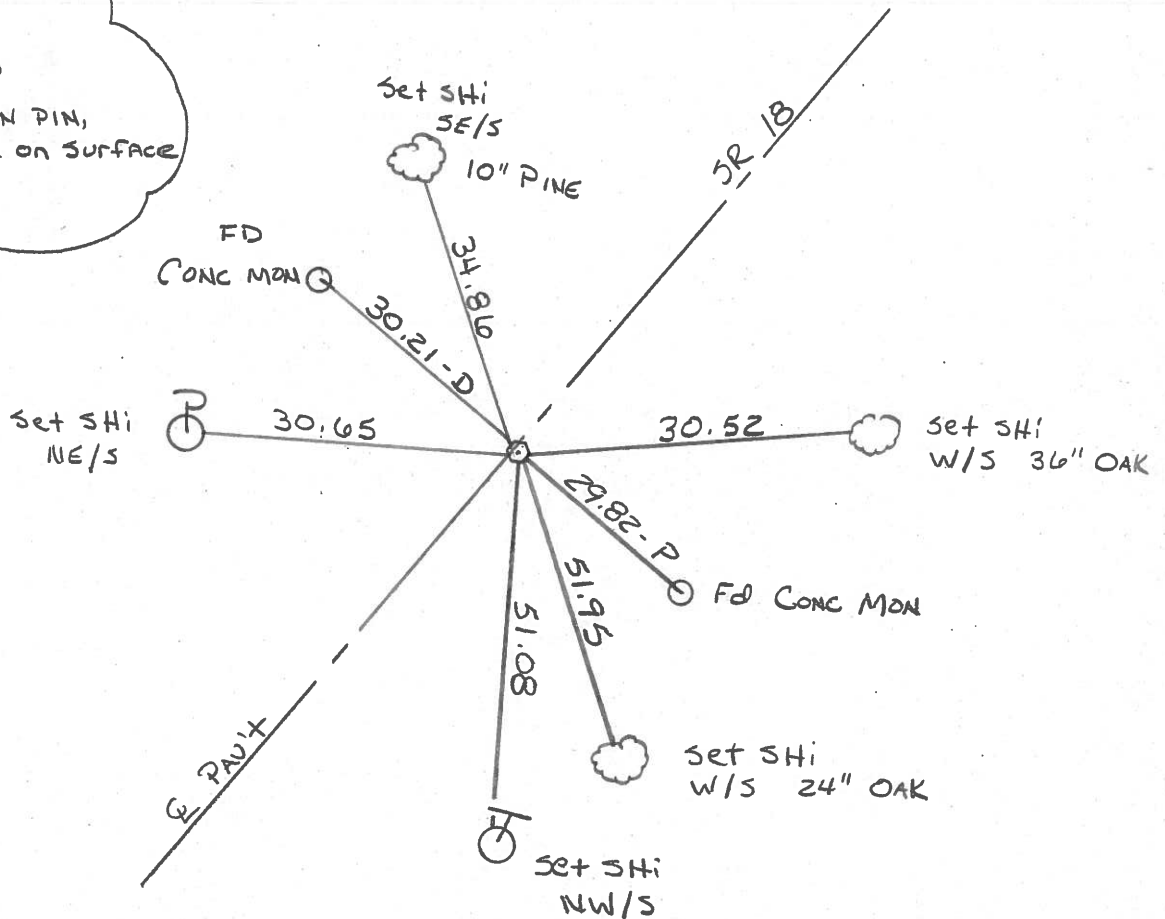 N PIN,
on Surface
Set SHi
SE/S
10" PINE
SR 18
FD
CONC MON
34.86
30.21-D
Set SHi
NE/S
30.65
30.52
Set SHi
W/S 36" OAK
29.82-P
Fd CONC MON
51.95
51.08
℄ PAV'T
Set SHi
W/S 24" OAK
Set SHi
NW/S